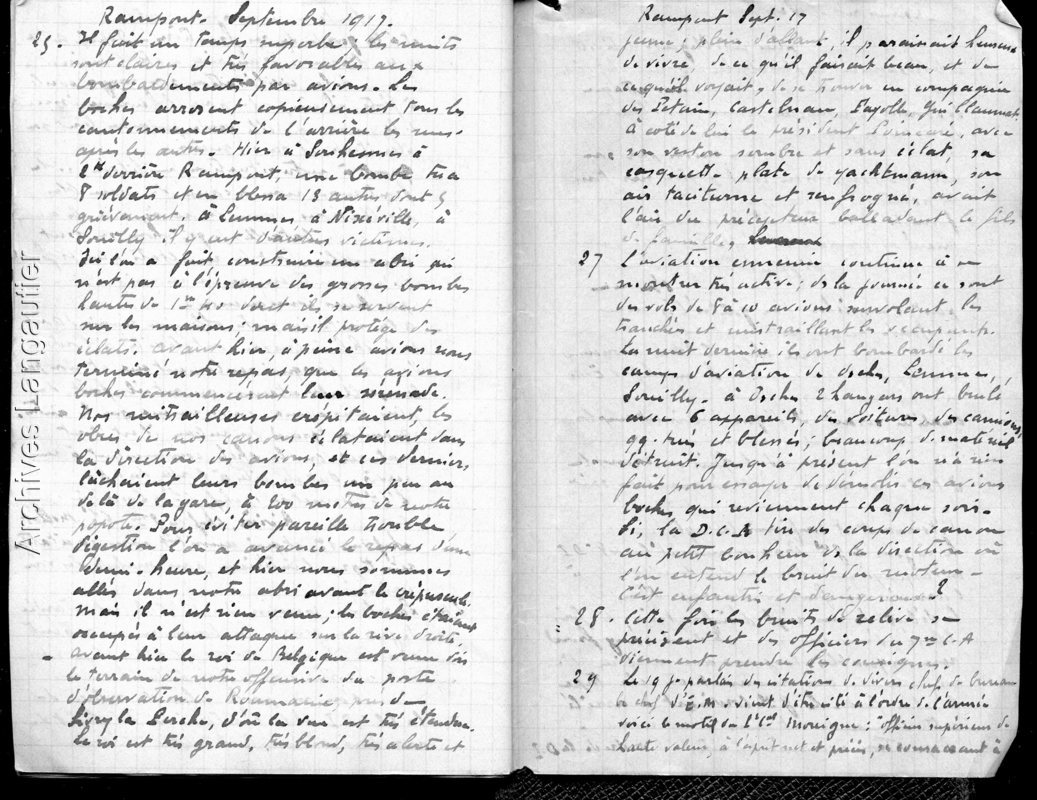 Rampont. Septembre 1917.
25. Il fait un temps superbe; les nuits
sont claires et très favorables aux
bombardements par avions. Les
boches arrosent copieusement tous les
cantonnements de l'arrière les uns
après les autres. Hier à Souhesmes à
2km derrière Rampont, une bombe tua
8 soldats et en blessa 13 autres dont 5
grièvement. à Lemmes à Nixéville, à
Souilly il y eut d'autres victimes.
Ici l'on a fait construire un abri qui
n'est pas à l'épreuve des grosses bombes
hautes de 1m40 dont ils se servent
sur les maisons; mais il protège des
éclats. avant hier, à peine avions nous
terminé notre repas que les avions
boches commencèrent leur sérénade.
Nos mitrailleuses crépitaient, les
obus de nos canons éclataient dans
la direction des avions, et ces derniers
lâchaient leurs bombes un peu au
delà de la gare, à 200 mètres de notre
popote. Pour éviter pareille trouble
digestion l'on a avancé le repas d'une
demi-heure, et hier nous sommes
allés dans notre abri avant le crépuscule.
mais il n'est rien venu; les boches étaient
occupés à leur attaque sur la rive droite.
- avant hier le roi de Belgique est venu voir
le terrain de notre offensive du poste
d'observation de près de
Sivry la Perche, d'où la vue est très étendue.
Le roi est très grand, très blond, très alerte et
Rampont Sept. 17
jeune; plein d'allant, il paraissait heureux
de vivre, de ce qu'il faisait beau, et de
ce qu'il voyait, de se trouver en compagnie
des Pétain, Castelnau, Fayolle, Guillaumat
à coté de lui le président Poincaré, avec
son veston sombre et sans éclat, sa
casquette plate de yachtmann, son
air taciturne et renfrogné, avait
l'air du précepteur balladant le fils
de famille.
27 L'aviation ennemie continue à se
montrer très active; de la journée ce sont
des vols de 8 à 10 avions survolant les
tranchées et mitraillant les occupants.
La nuit dernière ils ont bombardé les
camps d'aviation de Osches, Lemmes,
Souilly. à Osches 2 hangars ont brulé
avec 6 appareils, des voitures des camions,
qq. tués et blessés; beaucoup de matériel
détruit. Jusqu'à présent l'on n'a rien
fait pour essayer de démolir ces avions
boches qui reviennent chaque soir.
Si, la D.C.A tire des coups de canon
au petit bonheur de la direction où
l'on entend le bruit du moteur.
C'est enfantin et dangereux?
28. Cette fois les bruits de relève se
précisent et des officiers du 7me C.A
viennent prendre les consignes.
29 Le 19 je parlais des citations de divers chefs de bureau
le chef d'E.M. vient d'être cité à l'ordre de l'armée
voici le motif du Lt Cel : "officier supérieur de
haute valeur, à l'esprit net et précis, se consacrant à
Archives Langautier